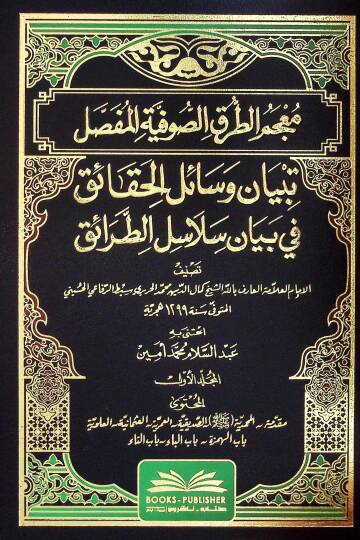 معجم الطرق الصوفية المفصل
تبيان وسائل الحقائق
في بيان سلاسل الطرائق
تصنيف
الإمام العلامة العارف بالله الشيخ كمال الدين محمد الحريري سبط الرفاعي الحسيني
المتوفى سنة ١٢٩٩ هجرية
اعتنى به
عبد السلام محمد أمين
المجلد الأول
المحتوى
مقدمة - المحمدية ﷺ الصديقية - العمرية - العثمانية - العلوية
باب الهمزة - باب الباء - باب التاء
BOOKS - PUBLISHER
كتاب - ناشرون